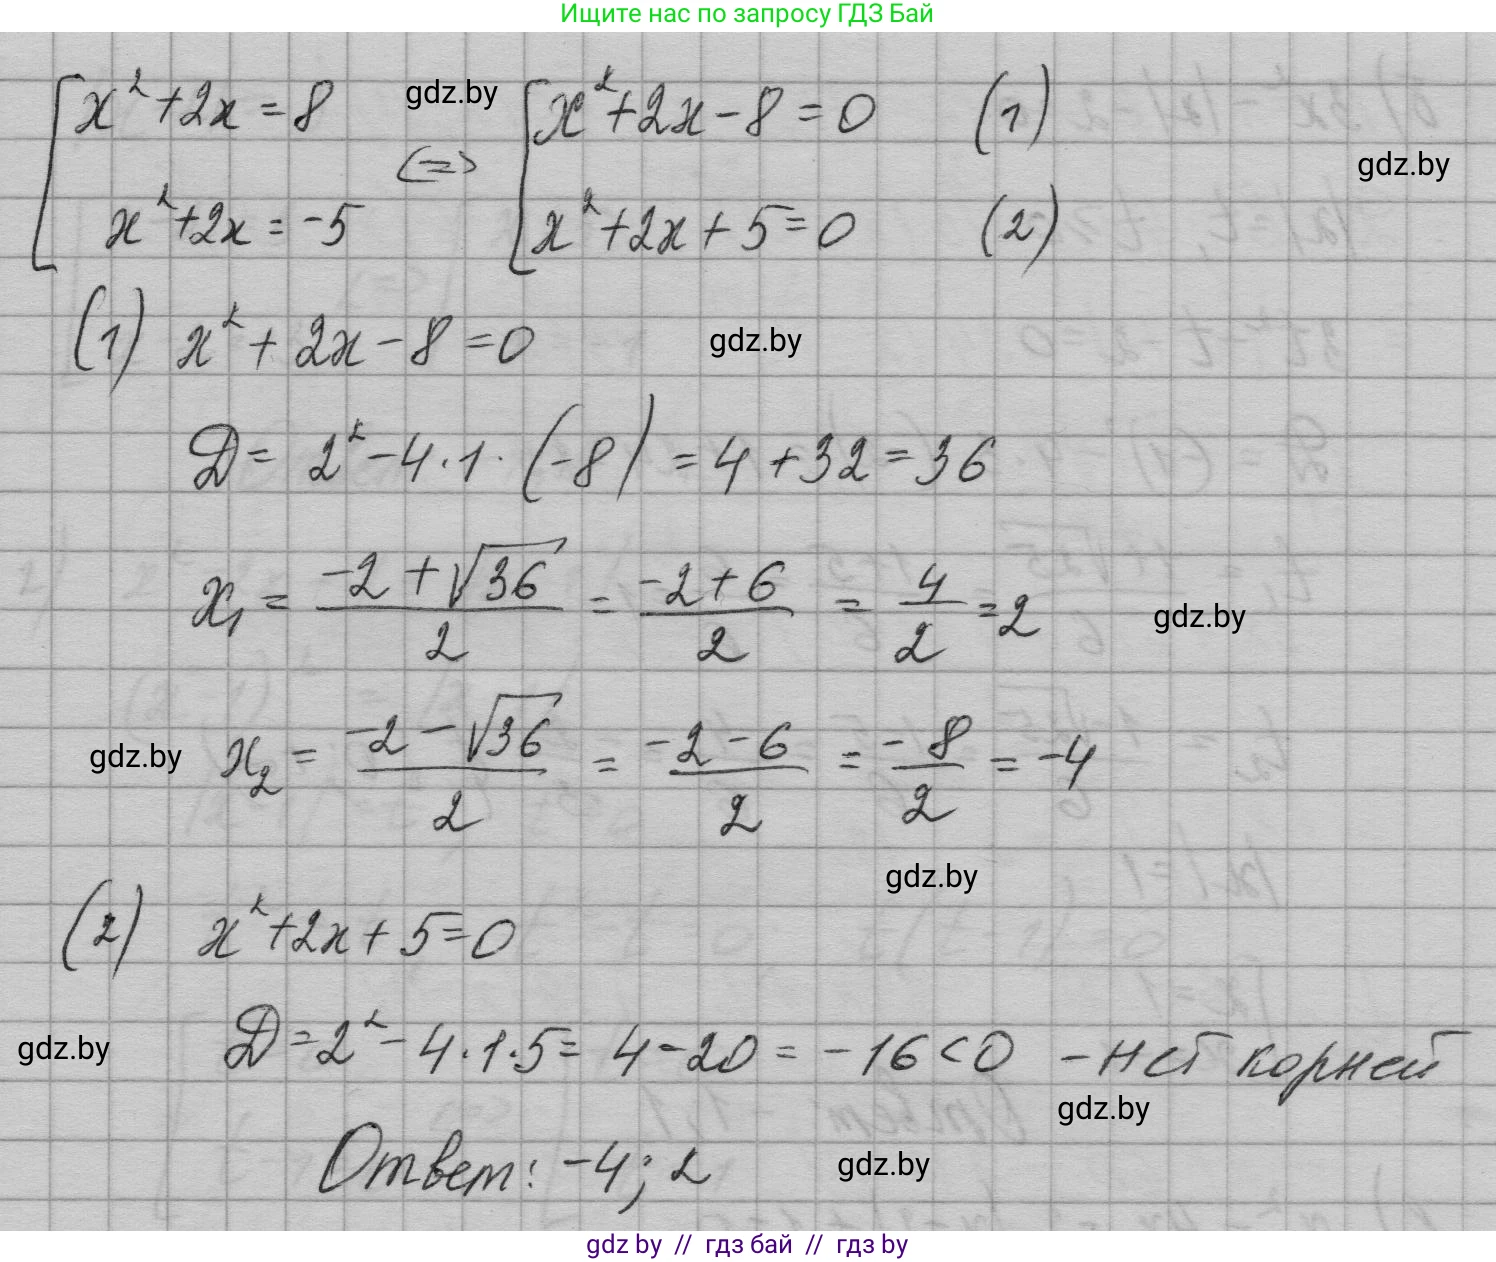 Ищите нас по запросу ГДЗ Бай
[ x² + 2x = 8 gdz.by [ x² + 2x - 8 = 0 (1)
<=> gdz.by
x² + 2x = -5 x² + 2x + 5 = 0 (2)
(1) x² + 2x - 8 = 0 gdz.by
D = 2² - 4·1·(-8) = 4 + 32 = 36
x₁ = (-2 + √36)/2 = (-2 + 6)/2 = 4/2 = 2 gdz.by
gdz.by x₂ = (-2 - √36)/2 = (-2 - 6)/2 = -8/2 = -4
gdz.by
(2) x² + 2x + 5 = 0
gdz.by D = 2² - 4·1·5 = 4 - 20 = -16 < 0 - нет корней
gdz.by
Ответ: -4; 2 gdz.by
gdz by // гдз бай // гдз by